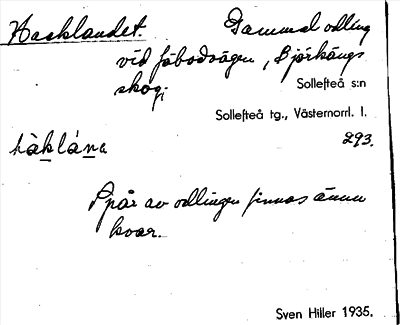 Hacklandet. Gammal odling
vid fäbodvägen, Björkängs
skog.
Sollefteå s:n
Sollefteå tg., Västernorrl. l.
hàklána 293.
Spår av odlingen finnas ännu
kvar.
Sven Hiller 1935.